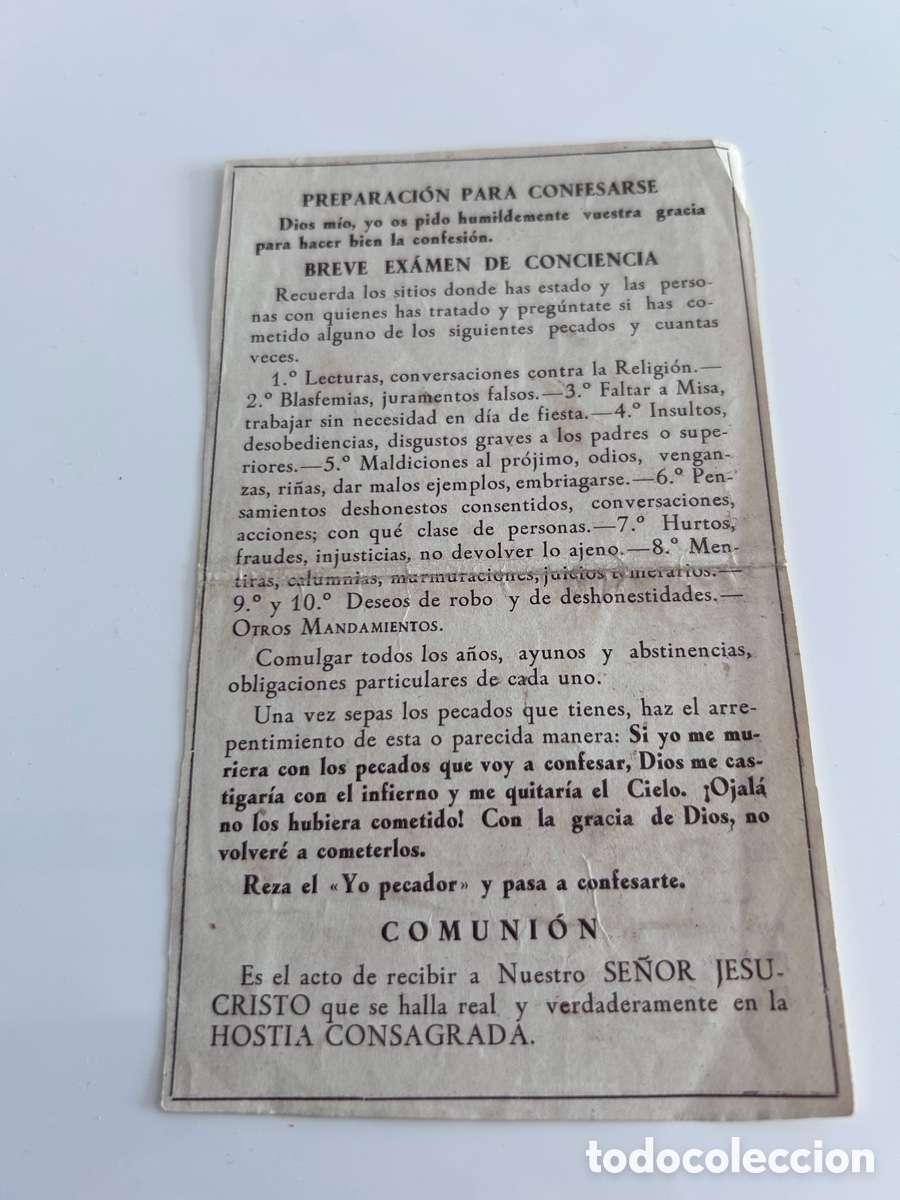 PREPARACIÓN PARA CONFESARSE
Dios mío, yo os pido humildemente vuestra gracia
para hacer bien la confesión.
BREVE EXÁMEN DE CONCIENCIA
Recuerda los sitios donde has estado y las perso-
nas con quienes has tratado y pregúntate si has co-
metido alguno de los siguientes pecados y cuantas
veces.
1.º Lecturas, conversaciones contra la Religión.—
2.º Blasfemias, juramentos falsos.—3.º Faltar a Misa,
trabajar sin necesidad en día de fiesta.—4.º Insultos,
desobediencias, disgustos graves a los padres o supe-
riores.—5.º Maldiciones al prójimo, odios, vengan-
zas, riñas, dar malos ejemplos, embriagarse.—6.º Pen-
samientos deshonestos consentidos, conversaciones,
acciones; con qué clase de personas.—7.º Hurtos,
fraudes, injusticias, no devolver lo ajeno.—8.º Men-
tiras, calumnias, murmuraciones, juicios temerarios.—
9.º y 10.º Deseos de robo y de deshonestidades.—
OTROS MANDAMIENTOS.
Comulgar todos los años, ayunos y abstinencias,
obligaciones particulares de cada uno.
Una vez sepas los pecados que tienes, haz el arre-
pentimiento de esta o parecida manera: Si yo me mu-
riera con los pecados que voy a confesar, Dios me cas-
tigaría con el infierno y me quitaría el Cielo. ¡Ojalá
no los hubiera cometido! Con la gracia de Dios, no
volveré a cometerlos.
Reza el «Yo pecador» y pasa a confesarte.
COMUNIÓN
Es el acto de recibir a Nuestro SEÑOR JESU-
CRISTO que se halla real y verdaderamente en la
HOSTIA CONSAGRADA.
todocoleccion